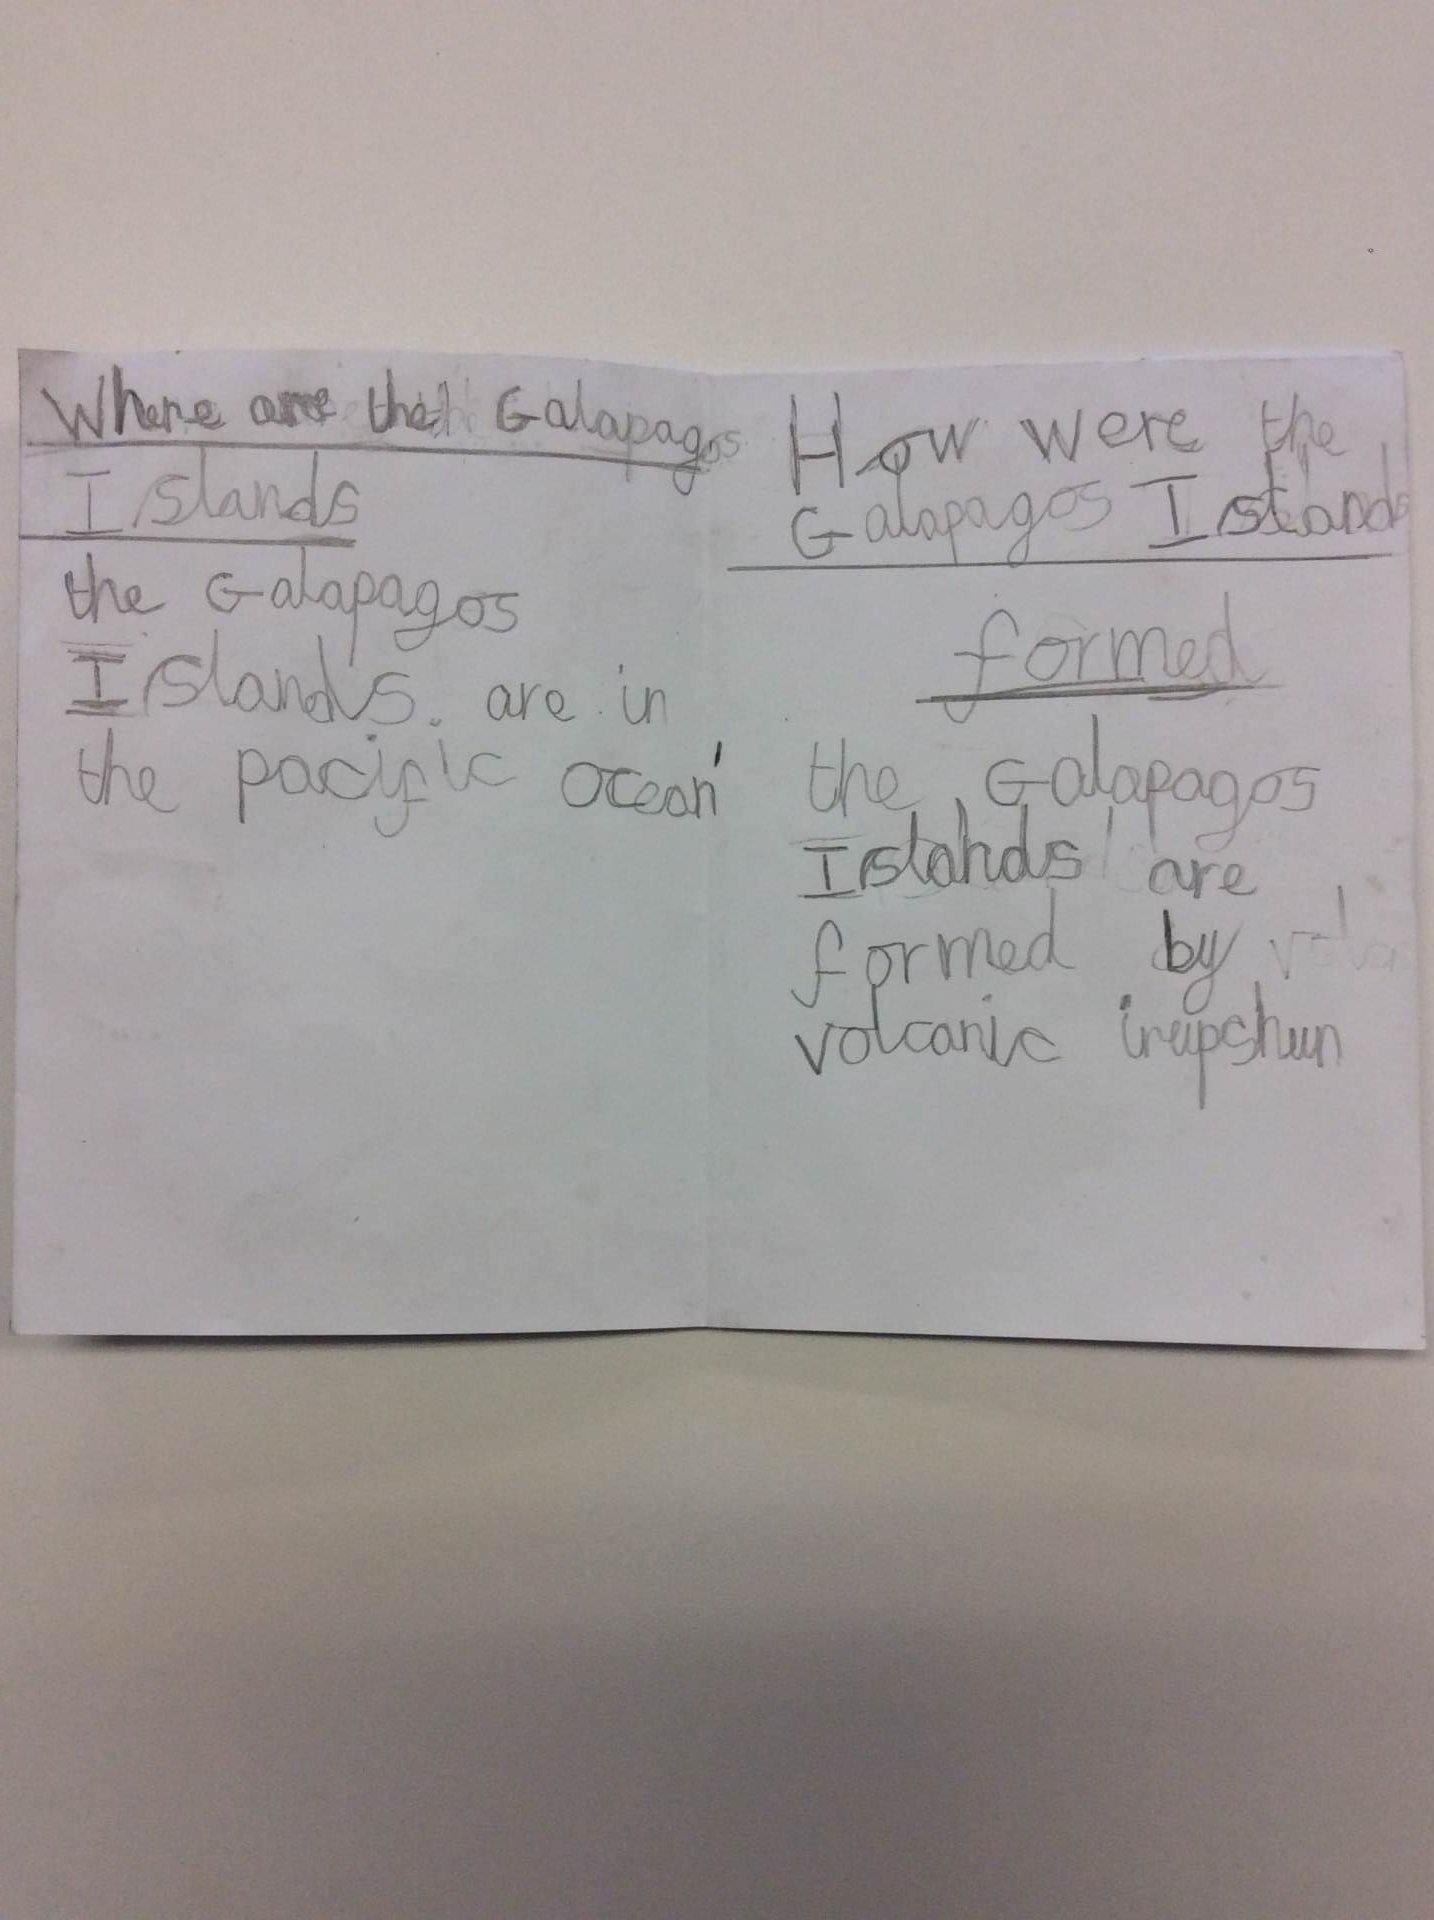 Where are the Galapagos
Islands
the Galapagos
Islands. are in
the pacific ocean
How were the
Galapagos Islands
formed
the Galapagos
Islands are
formed by
volcanic irupshun